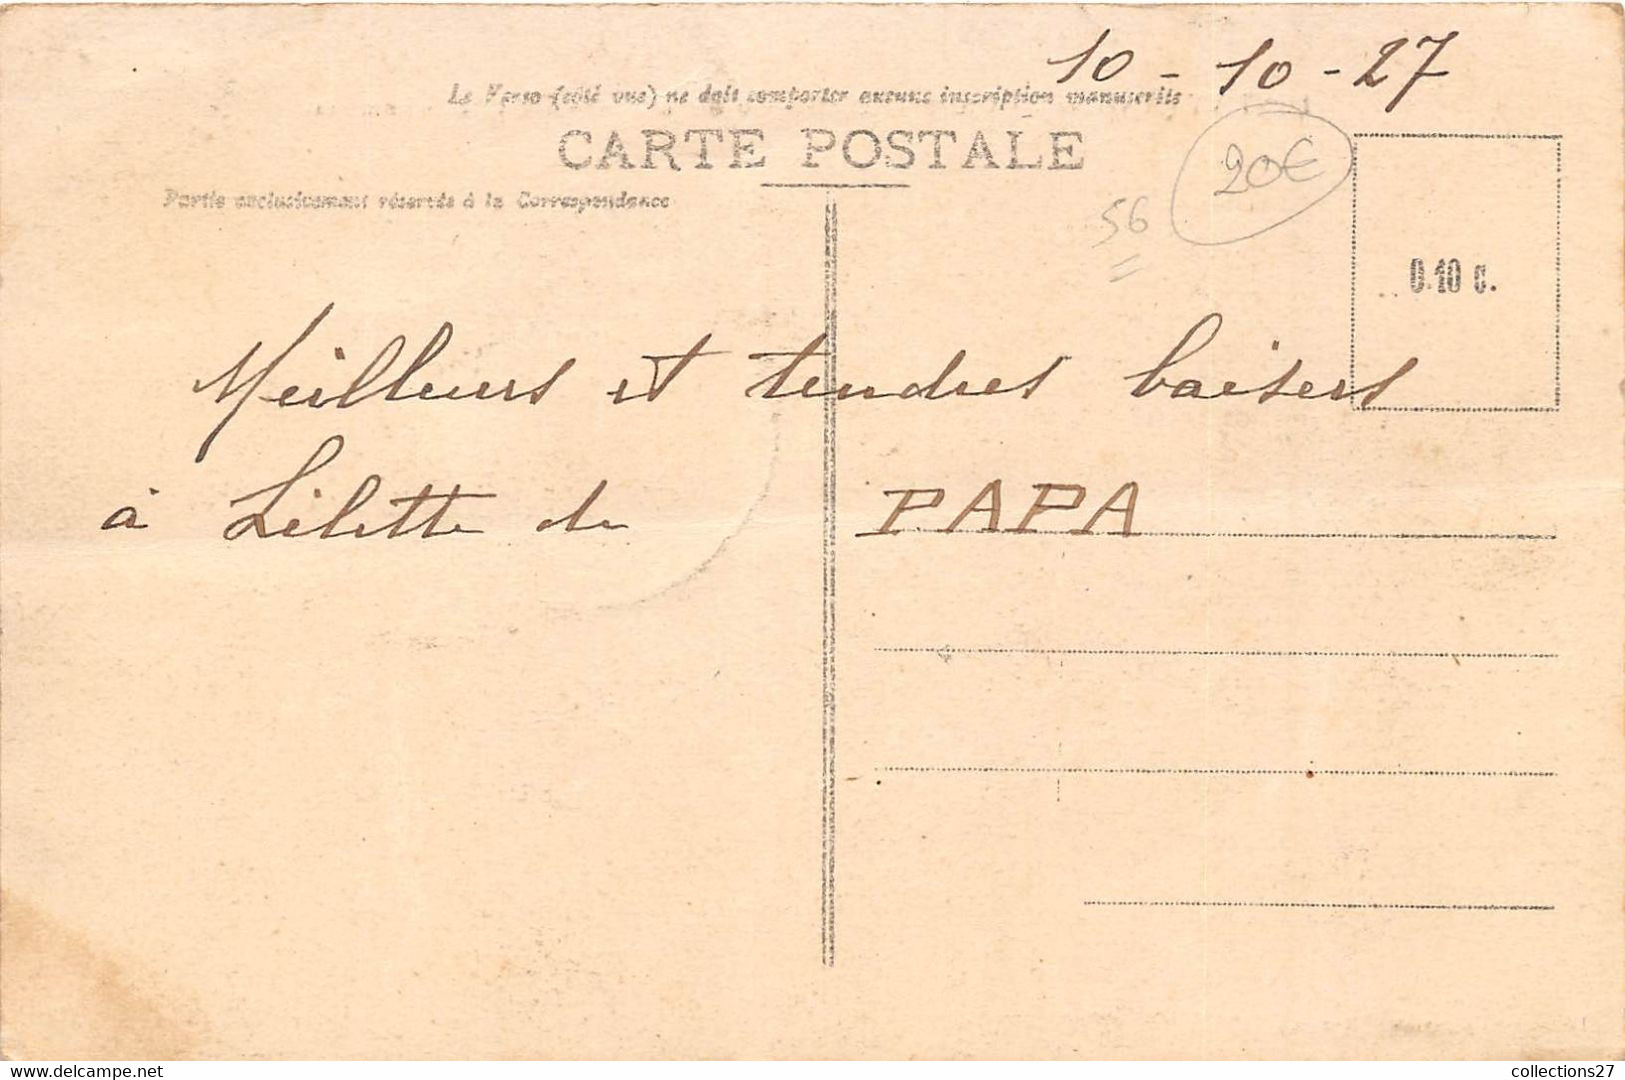 10 - 10 - 27
Le Verso (côté vue) ne doit comporter aucune inscription manuscrite
CARTE POSTALE
20€
Partie exclusivement réservée à la Correspondance
56
0.10 c.
Meilleurs et tendres baisers
à Lilette du PAPA
collections27